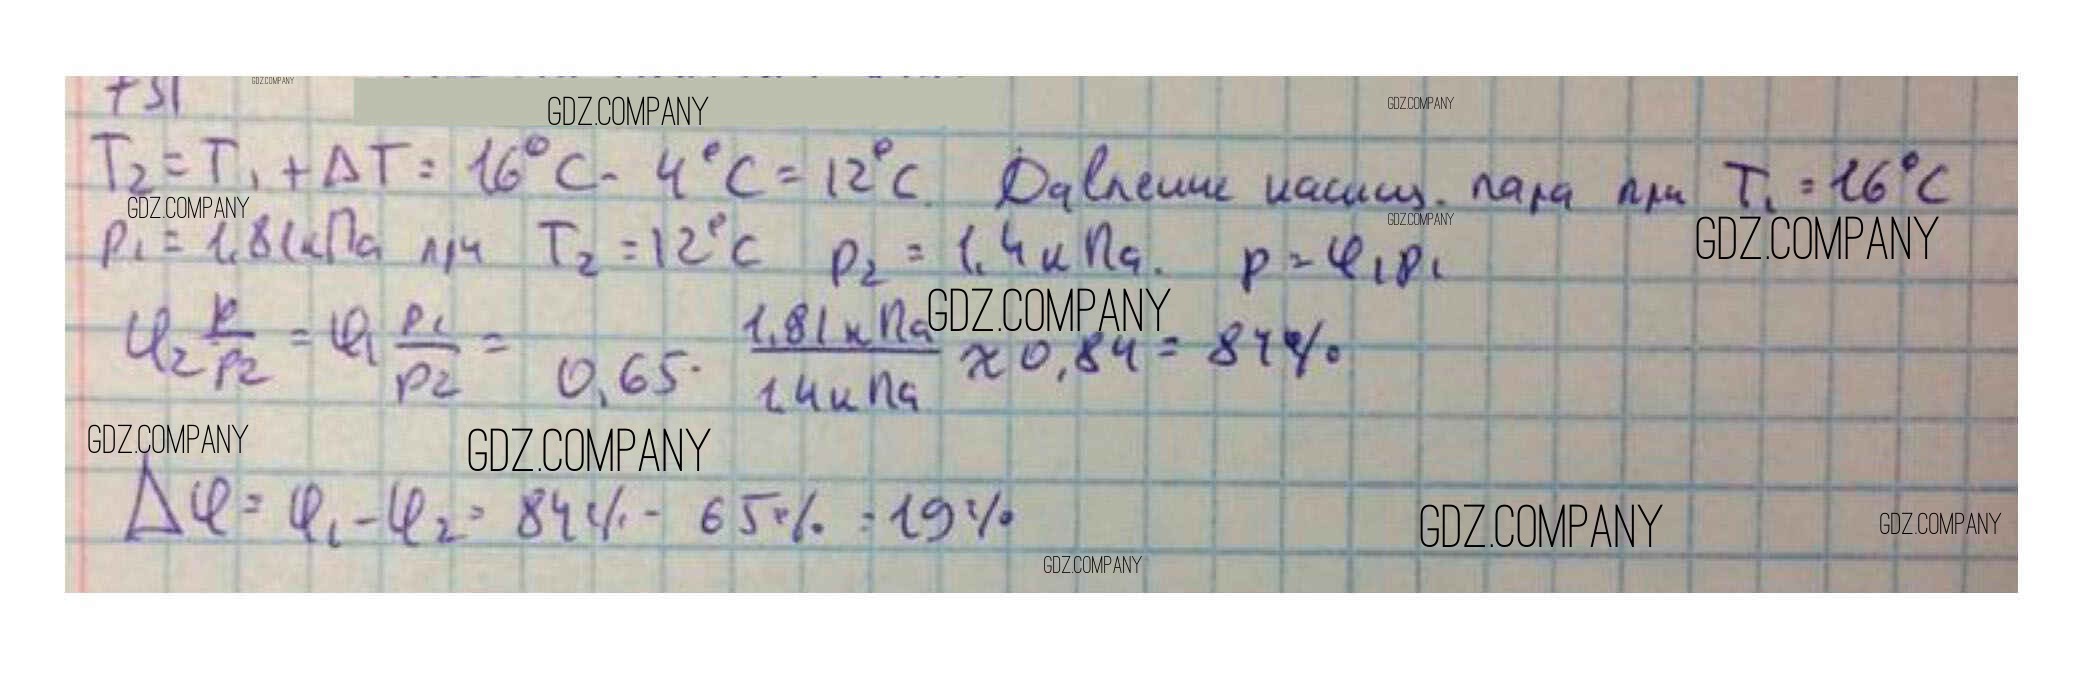 GDZ.COMPANY
GDZ.COMPANY
GDZ.COMPANY
T₂ = T₁ + ΔT = 16°C - 4°C = 12°C. Давление насыщ. пара при T₁ = 16°C
GDZ.COMPANY
GDZ.COMPANY
GDZ.COMPANY
p₁ = 1,81кПа при T₂ = 12°C p₂ = 1,4кПа. p = φ₁p₁
GDZ.COMPANY
φ₂ p/p₂ = φ₁ p₁/p₂ = 0,65 · 1,81кПа/1,4кПа ≈ 0,84 = 84%
GDZ.COMPANY
GDZ.COMPANY
Δφ = φ₁ - φ₂ = 84% - 65% = 19%
GDZ.COMPANY
GDZ.COMPANY
GDZ.COMPANY